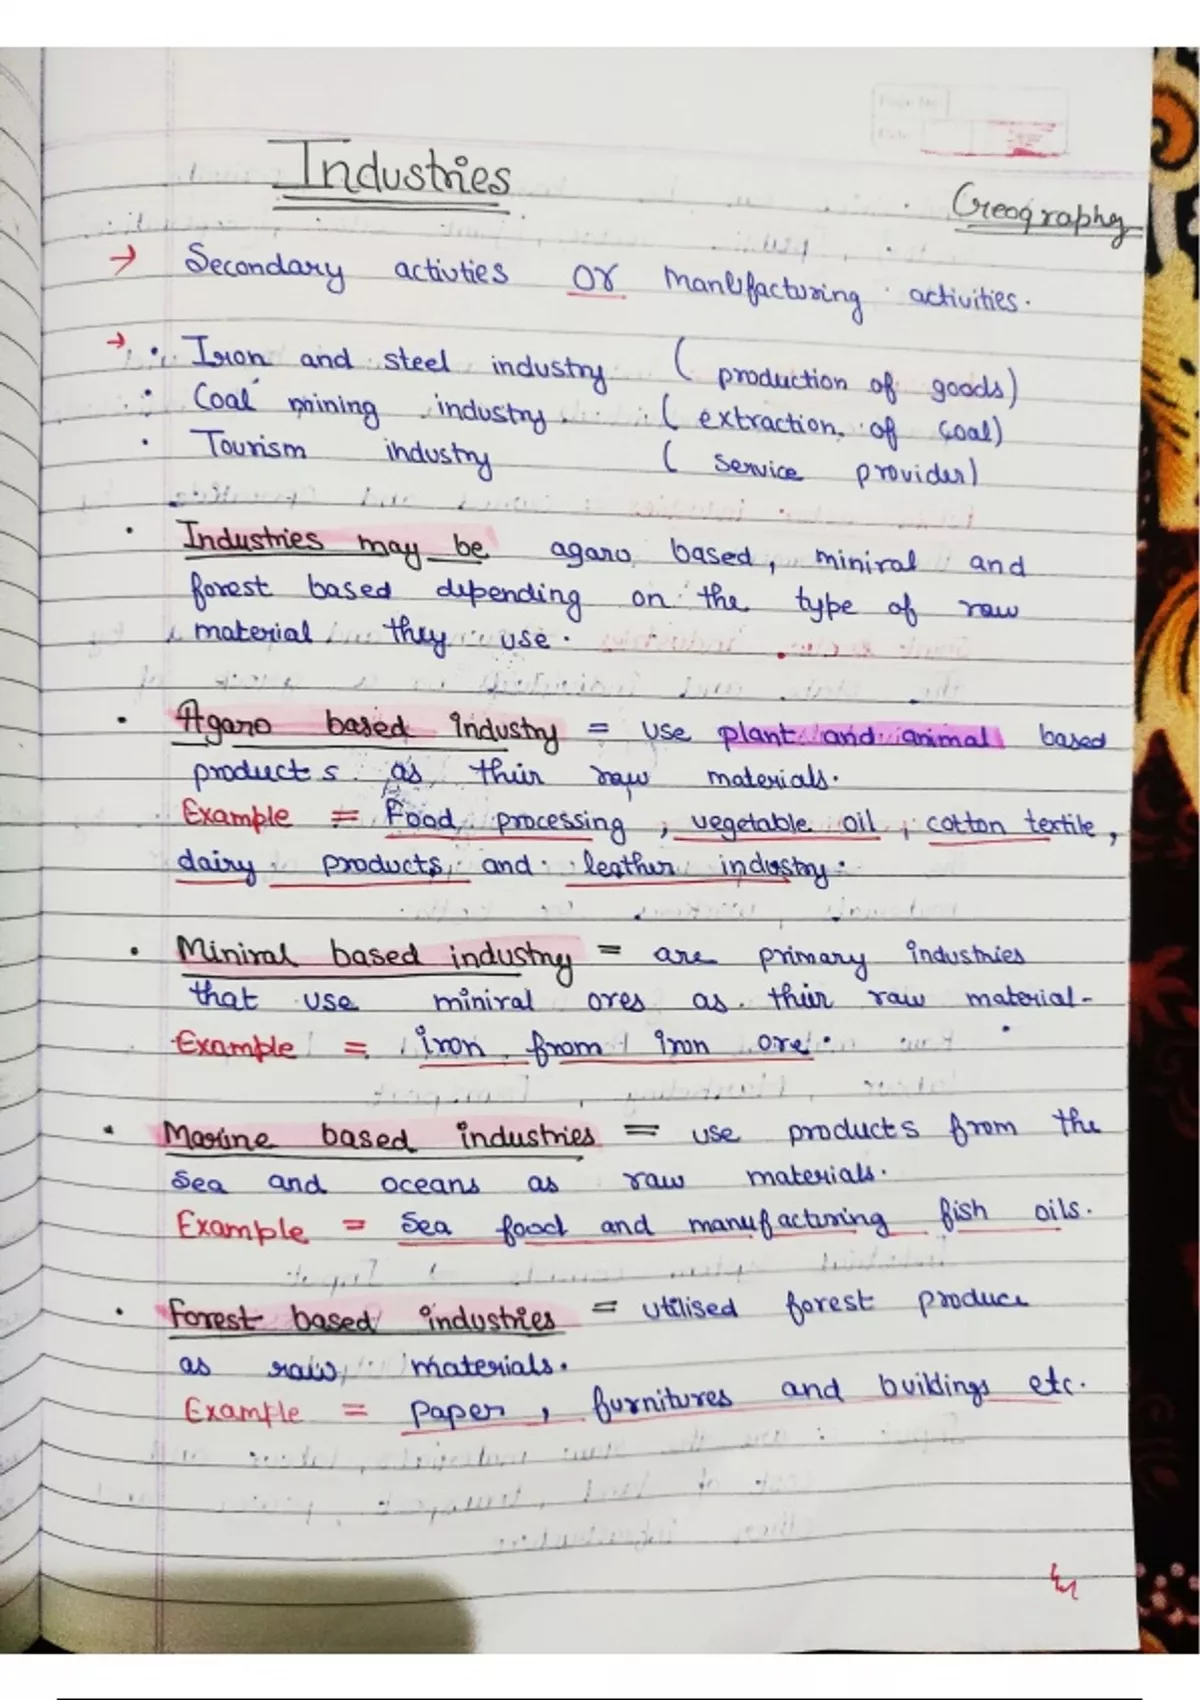 Industries
Geography
→ Secondary activties or manufacturing activities.
→ • Iron and steel industry ( production of goods)
• Coal mining industry. ( extraction of coal)
• Tourism industry ( service provider)
• Industries may be agaro based, miniral and
forest based depending on the type of raw
material they use.
• Agaro based industry = use plant and animal based
products as their raw materials.
Example = Food processing, vegetable oil, cotton textile,
dairy products, and leather industry.
• Miniral based industry = are primary industries
that use miniral ores as their raw material-
Example = iron from iron ore.
• Marine based industries = use products from the
sea and oceans as raw materials.
Example = sea food and manufacturing fish oils.
• Forest based industries = utilised forest produce
as raw materials.
Example = paper, furnitures and buildings etc.